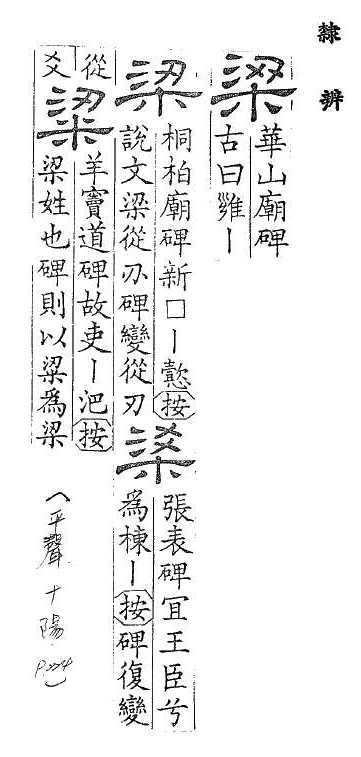 隸辨
梁
華山廟碑
古曰雝丨
梁
桐柏廟碑新□丨懿按
說文梁從刅碑變從刃
梁
張表碑宜王臣兮
爲棟丨按碑復變
從
爻
粱
羊竇道碑故吏丨汜按
梁姓也碑則以粱爲梁
(平聲 十陽 P224)